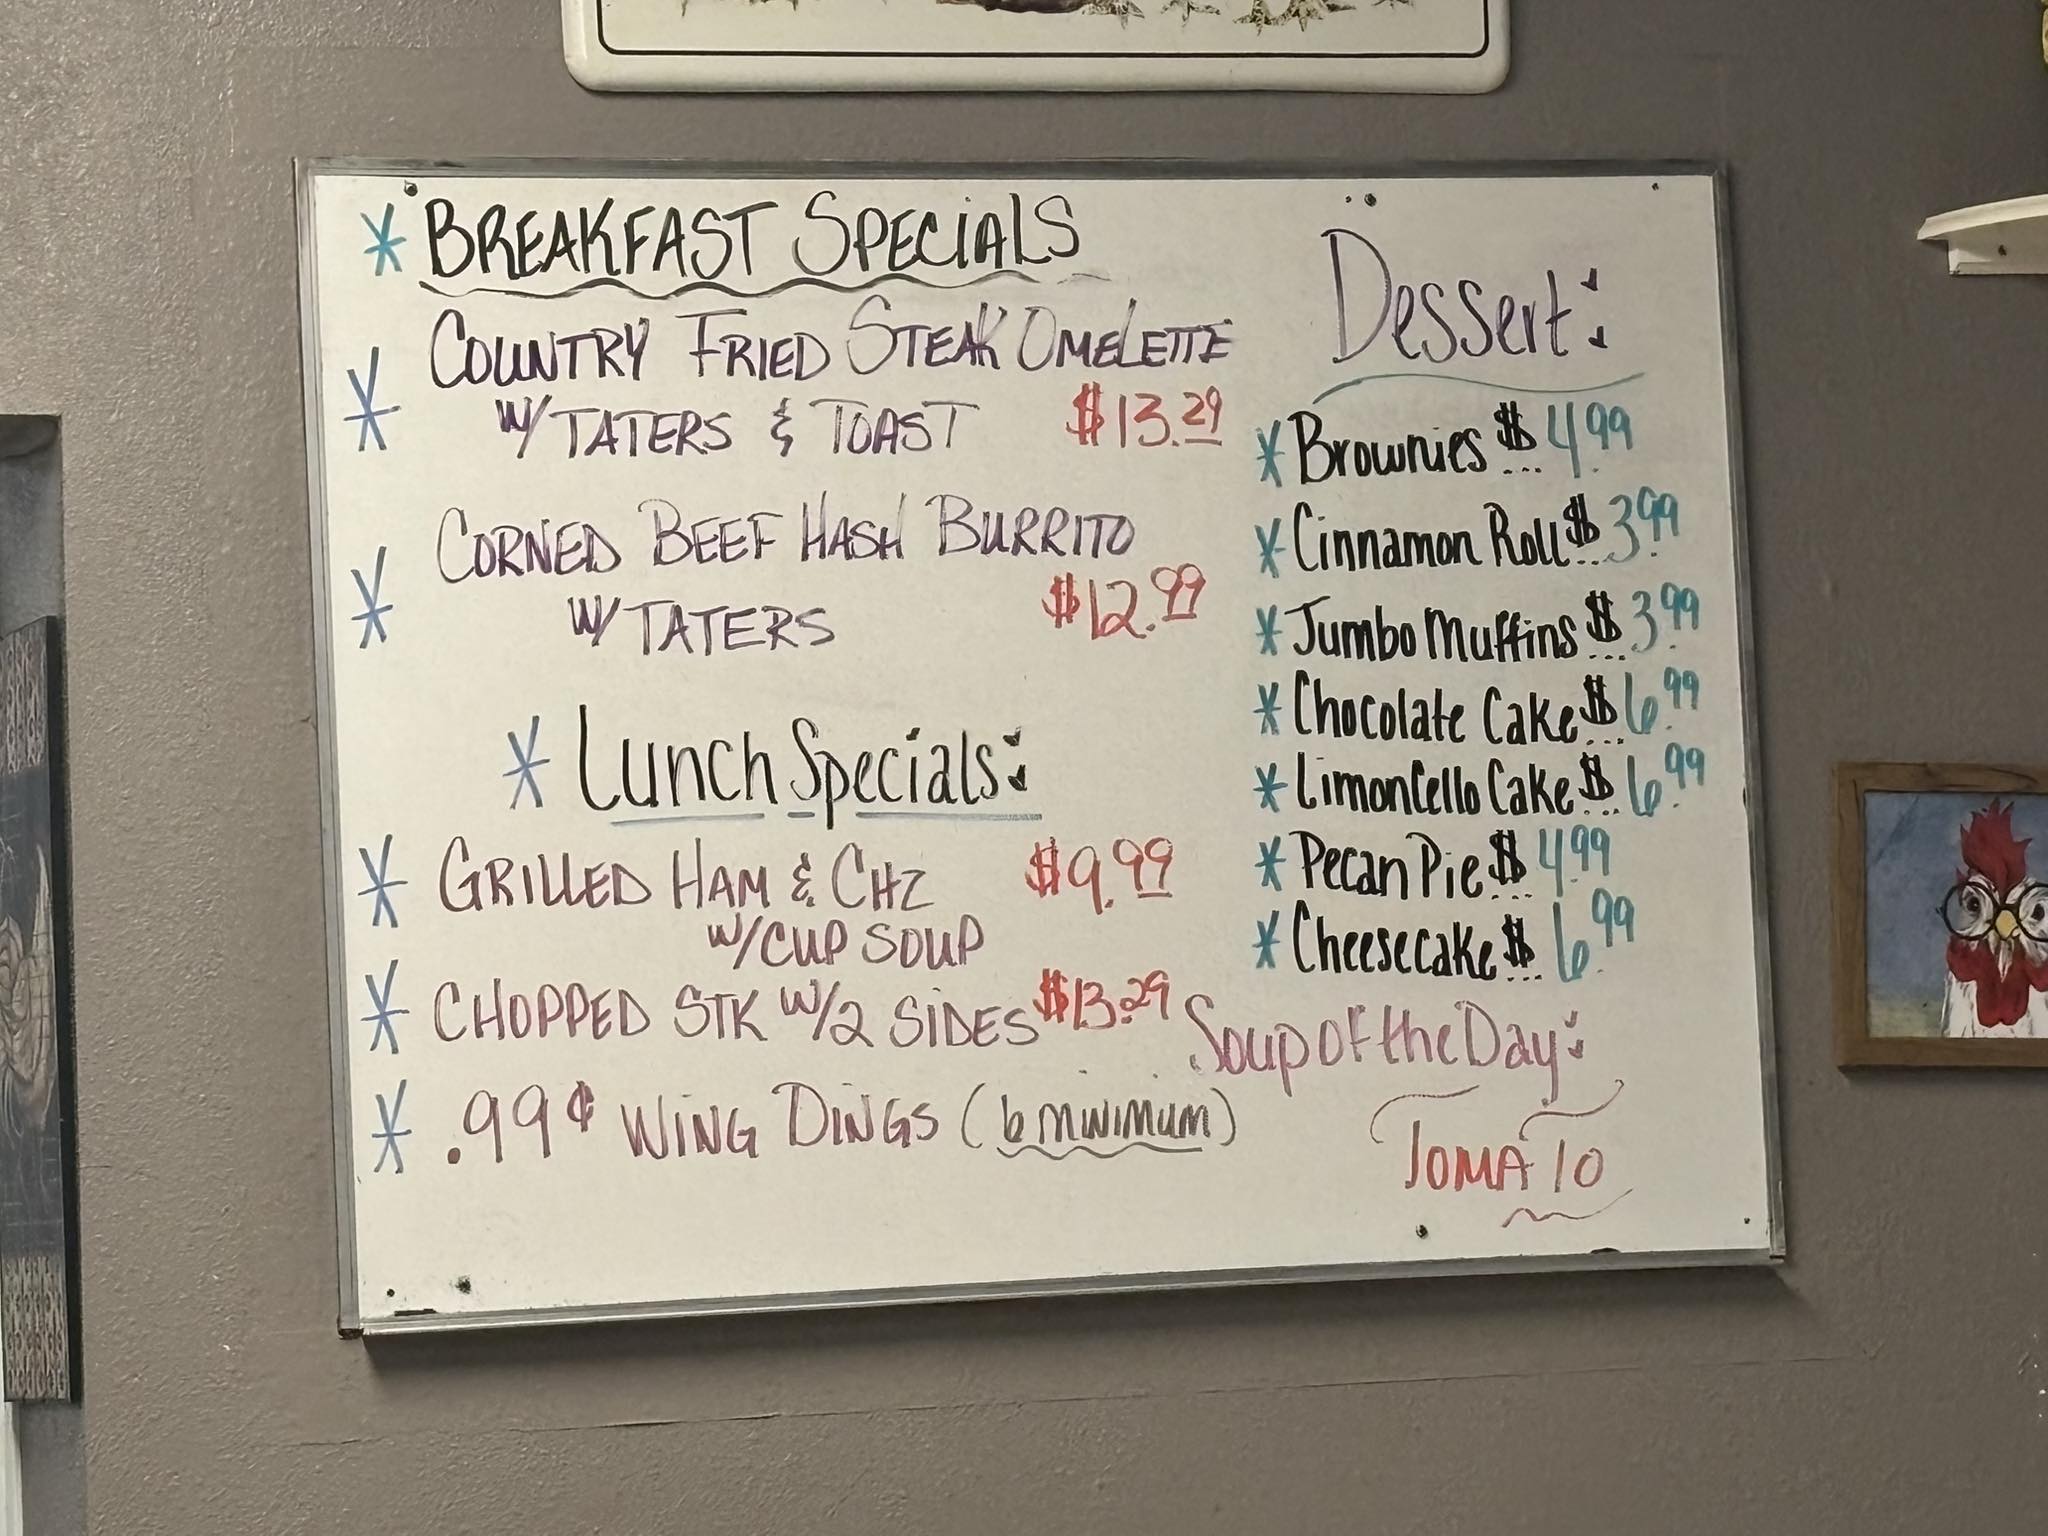 * BREAKFAST SPECIALS
* COUNTRY FRIED STEAK OMELETTE
W/ TATERS & TOAST $13.29
* CORNED BEEF HASH BURRITO
W/ TATERS $12.99
* Lunch Specials:
* GRILLED HAM & CHZ $9.99
W/ CUP SOUP
* CHOPPED STK W/2 SIDES $13.29
* .99¢ WING DINGS (6 MINIMUM)
Dessert:
* Brownies $4.99
* Cinnamon Roll $3.99
* Jumbo Muffins $3.99
* Chocolate Cake $6.99
* Limoncello Cake $6.99
* Pecan Pie $4.99
* Cheesecake $6.99
Soup of the Day:
TOMATO